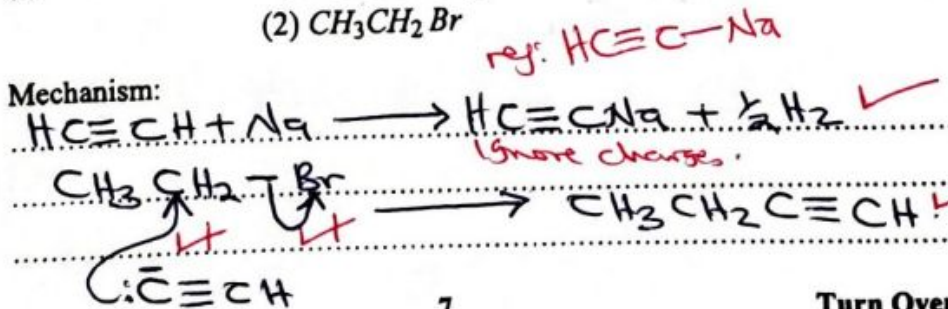 (2) CH₃CH₂ Br
rej: HC≡C—Na
Mechanism:
HC≡CH + Na ⟶ HC≡CNa + ½H₂ ✓
Ignore charges.
CH₃ CH₂ – Br ⟶ CH₃CH₂C≡CH
:C̄≡CH
7
Turn Over